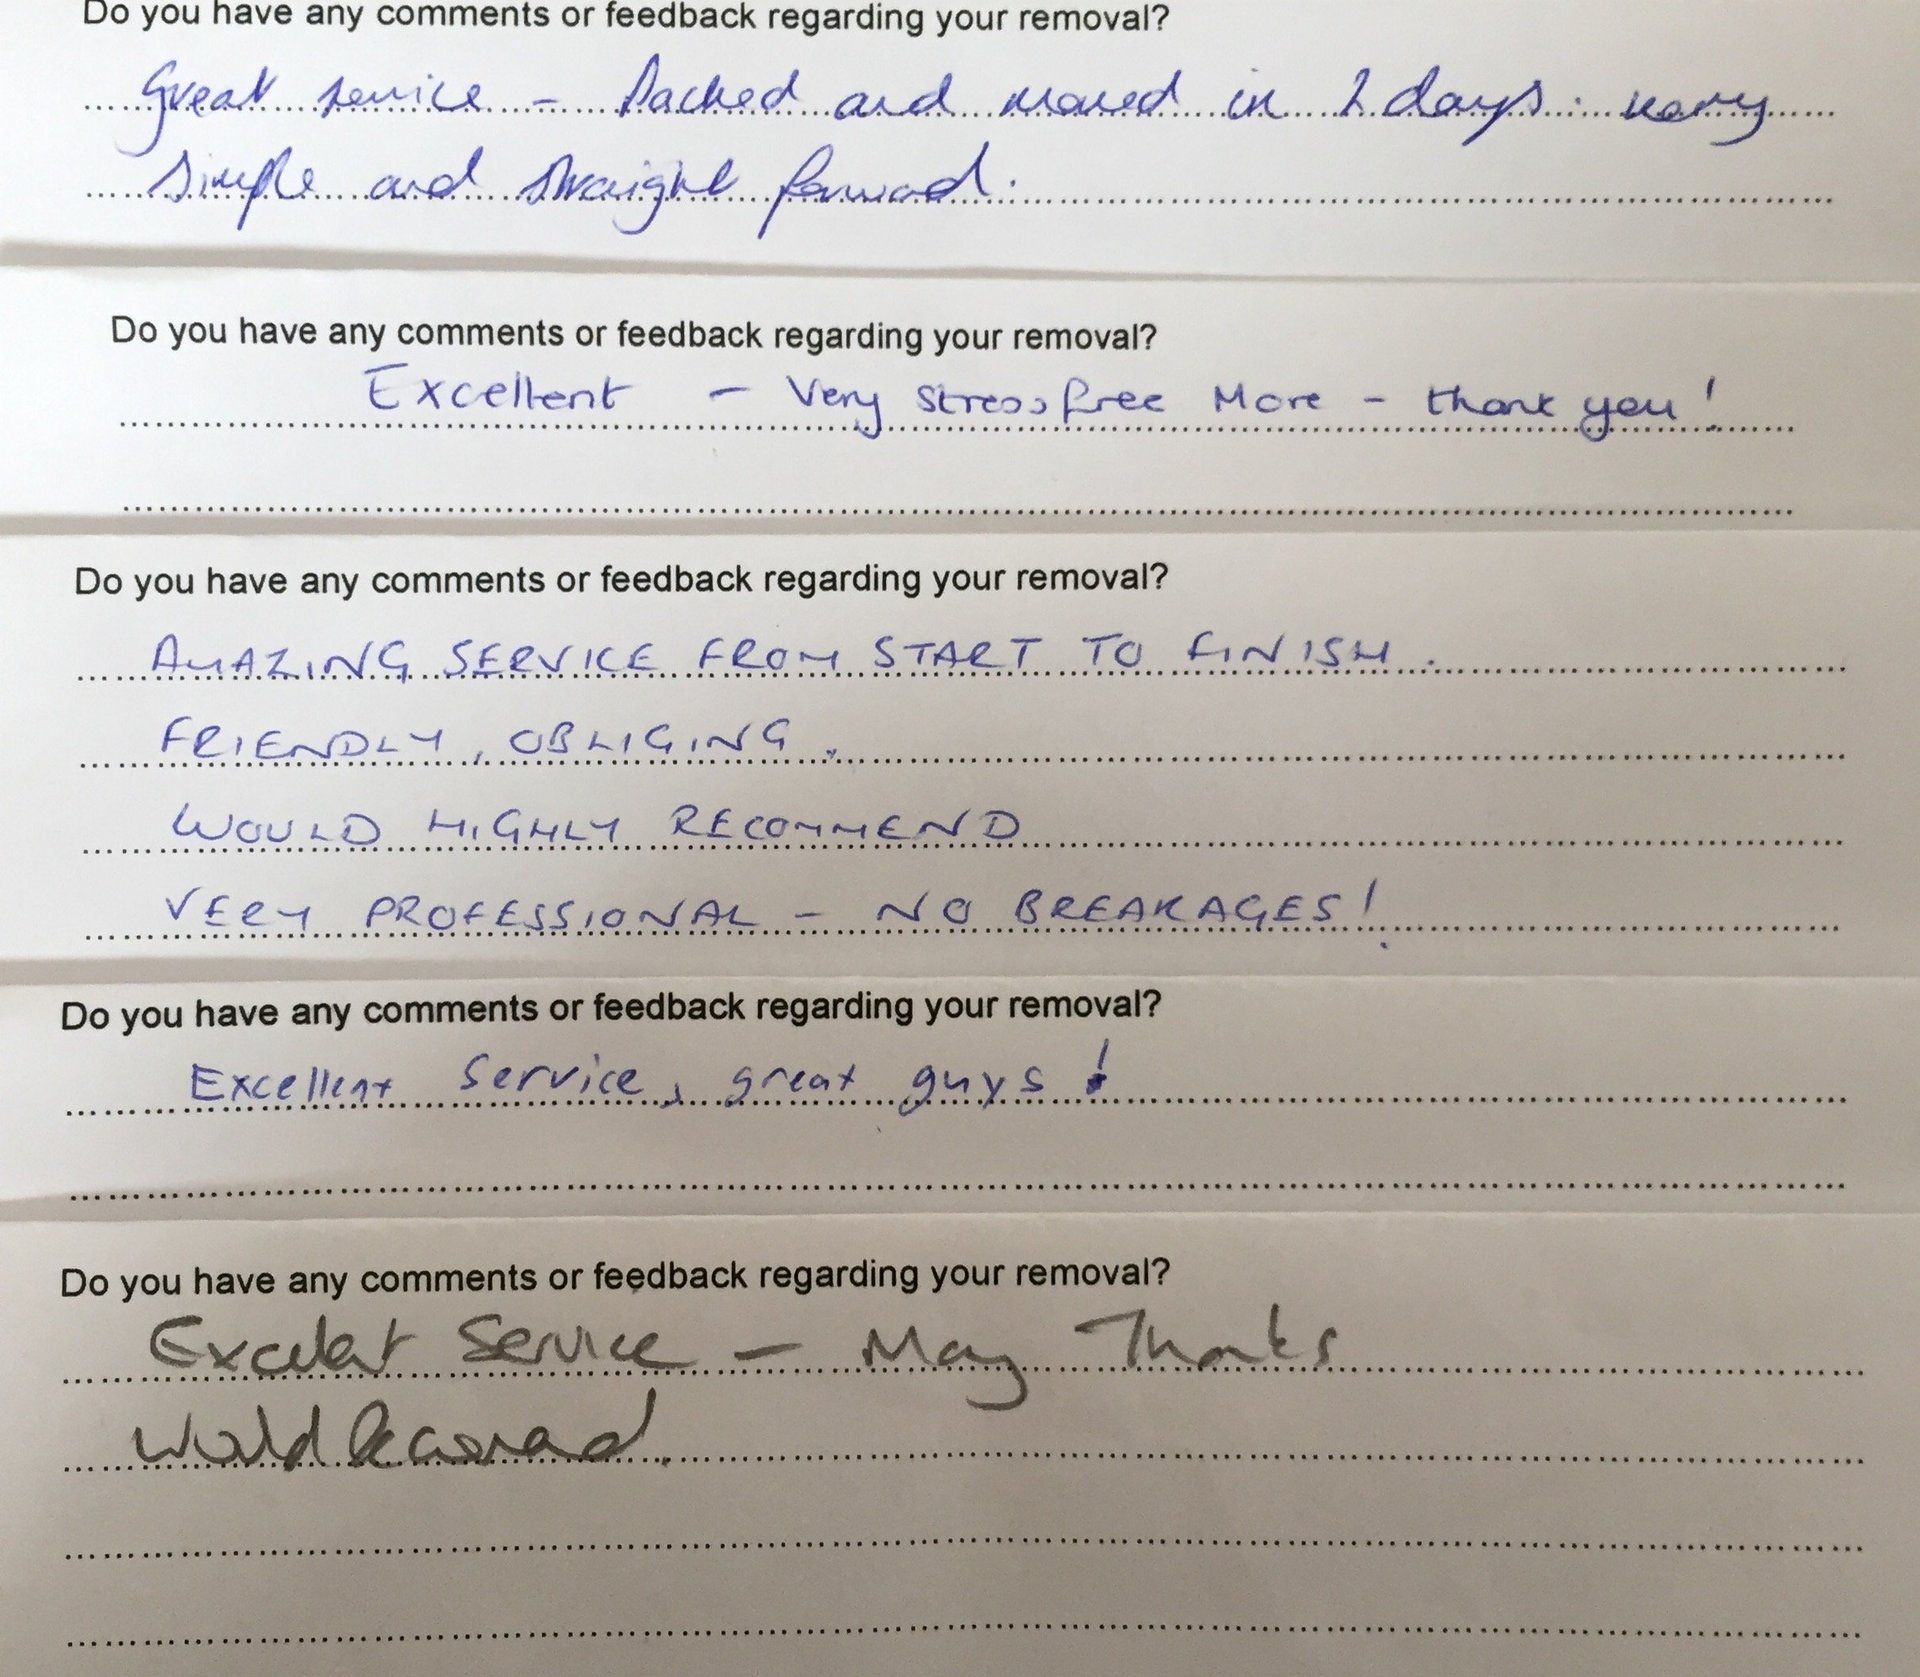 Do you have any comments or feedback regarding your removal?
Great service - Packed and moved in 2 days. very
simple and straight forward.
Do you have any comments or feedback regarding your removal?
Excellent - Very stress free Move - thank you!
Do you have any comments or feedback regarding your removal?
AMAZING SERVICE FROM START TO FINISH.
FRIENDLY, OBLIGING.
WOULD HIGHLY RECOMMEND
VERY PROFESSIONAL - NO BREAKAGES!
Do you have any comments or feedback regarding your removal?
Excellent Service, great guys!
Do you have any comments or feedback regarding your removal?
Excellent Service - Many Thanks
Would Recommend.